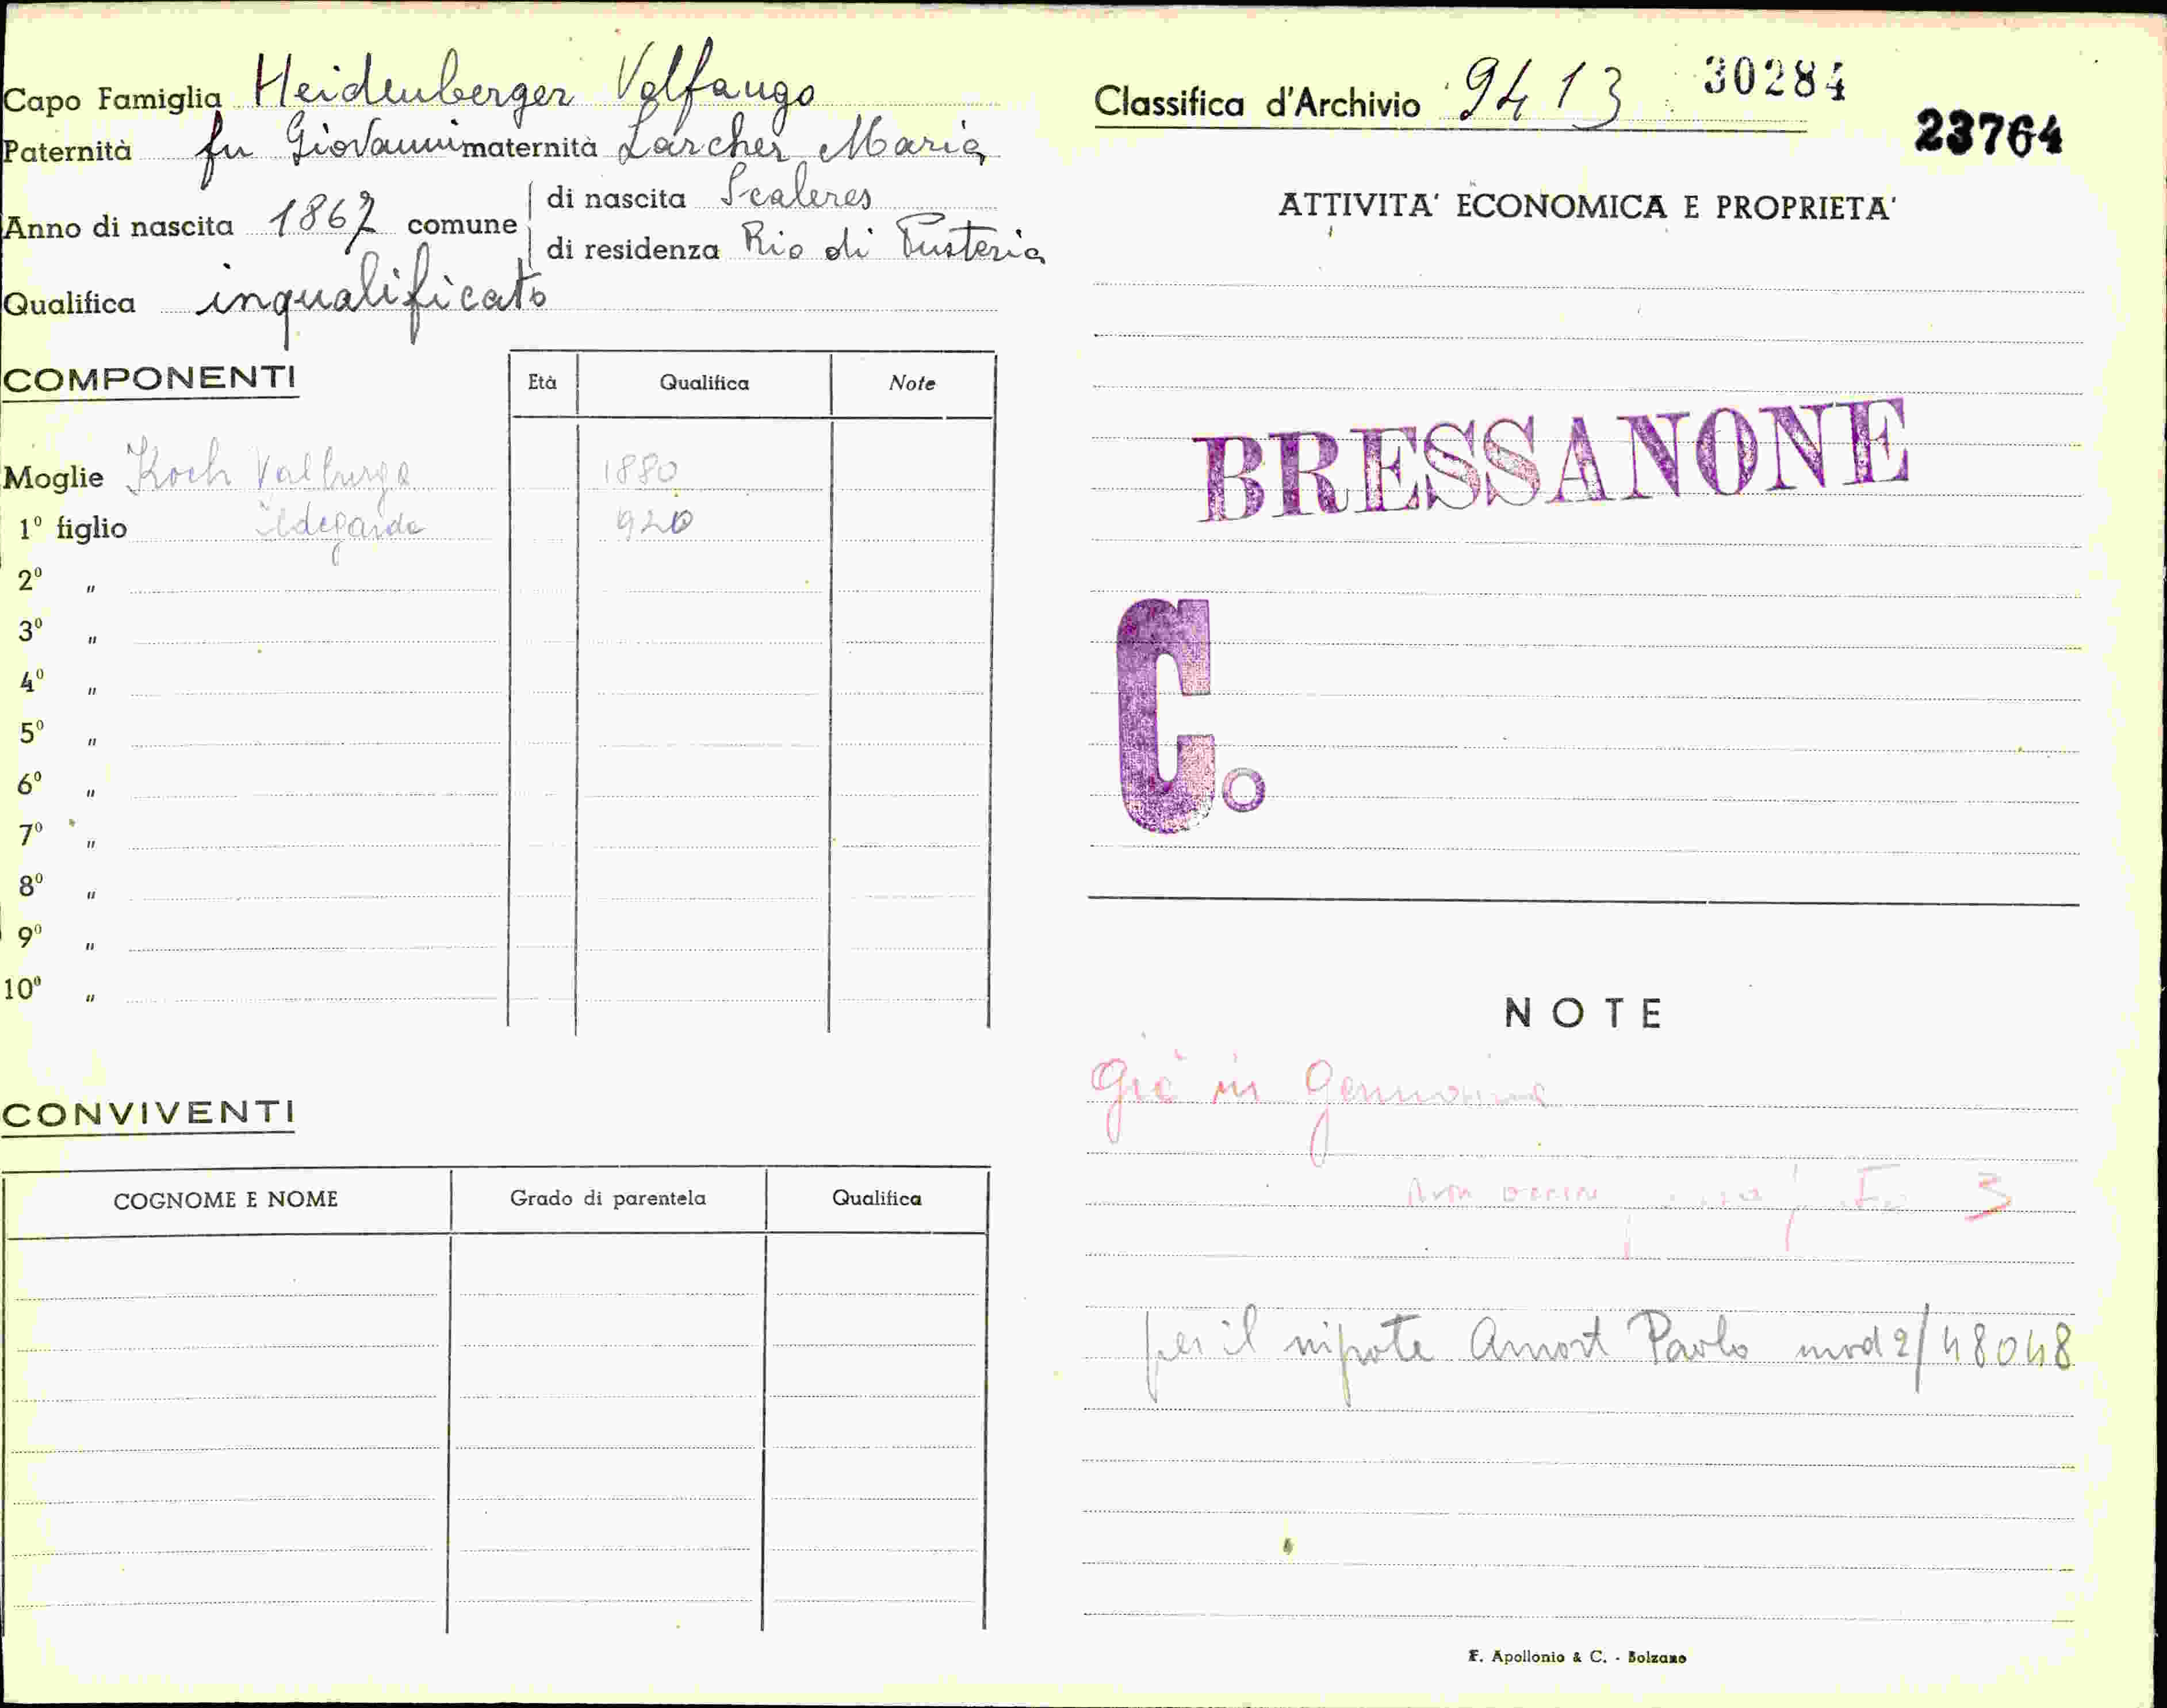 Capo Famiglia Heidenberger Volfango
Paternità fu Giovanni maternità Larcher Maria
Anno di nascita 1867 comune di nascita Scaleres
di residenza Rio di Pusteria
Qualifica inqualificato
COMPONENTI
Età Qualifica Note
Moglie Koch Valburga 1880
1º figlio Ildegarda 920
2º "
3º "
4º "
5º "
6º "
7º "
8º "
9º "
10º "
CONVIVENTI
COGNOME E NOME Grado di parentela Qualifica
Classifica d'Archivio 9413 30284
23764
ATTIVITA' ECONOMICA E PROPRIETA'
BRESSANONE
C.
NOTE
già in Germania
non 3
per il nipote Amort Paolo mod 2/48048
F. Apollonio & C. - Bolzano